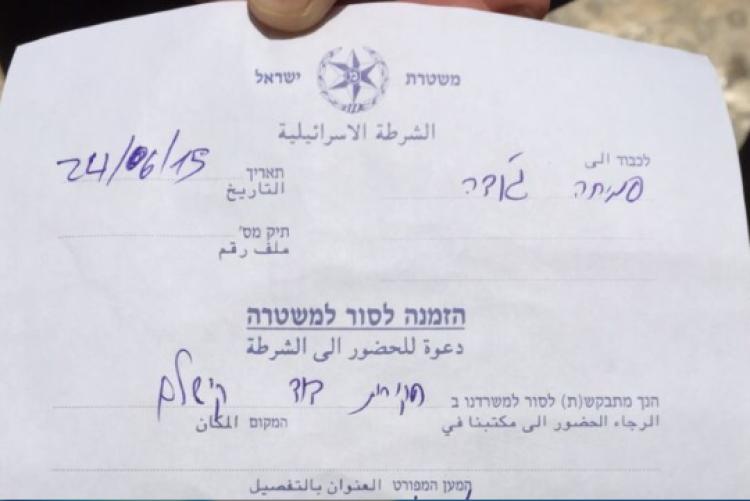 משטרת ישראל
الشرطة الاسرائيلية
לכבוד الى
תאריך 24/06/15
التاريخ
סמיחה
תיק מס'
ملف رقم
הזמנה לסור למשטרה
دعوة للحضور الى الشرطة
הנך מתבקש(ת) לסור למשרדנו ב חקירות דוד
الرجاء الحضور الى مكتبنا في המקום المكان
המען המפורט العنوان بالتفصيل